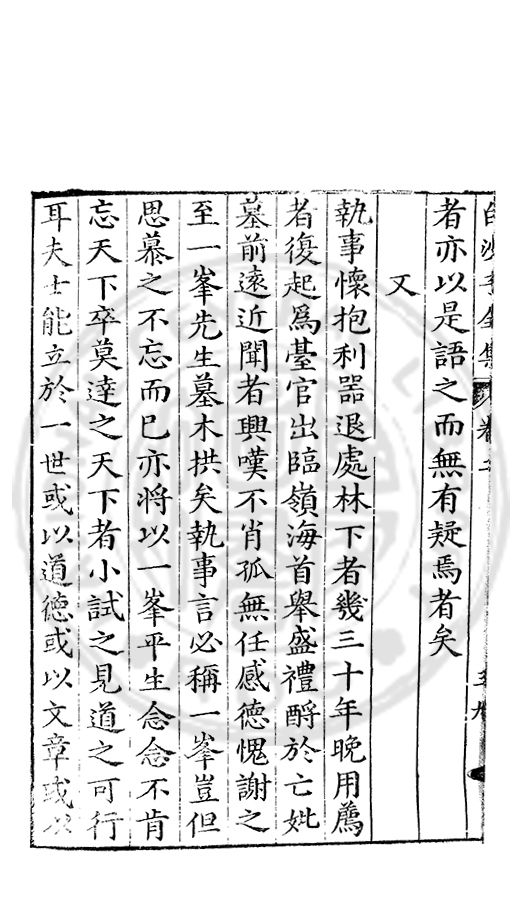 者亦以是語之而無有疑焉者矣
又
執事懷抱利器退處林下者幾三十年晚用薦
者復起爲臺官出臨嶺海首舉盛禮酹於亡妣
墓前遠近聞者興嘆不肖孤無任感德愧謝之
至一峯先生墓木拱矣執事言必稱一峯豈但
思慕之不忘而已亦將以一峯平生念念不肯
忘天下卒莫達之天下者小試之見道之可行
耳夫士能立於一世或以道德或以文章或以